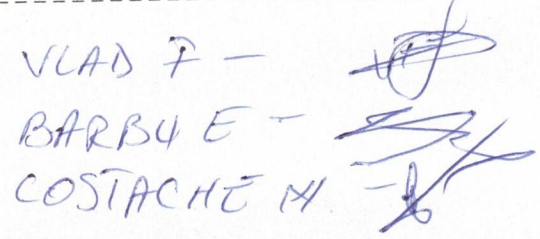 VLAD F -
BARBU E -
COSTACHE M -